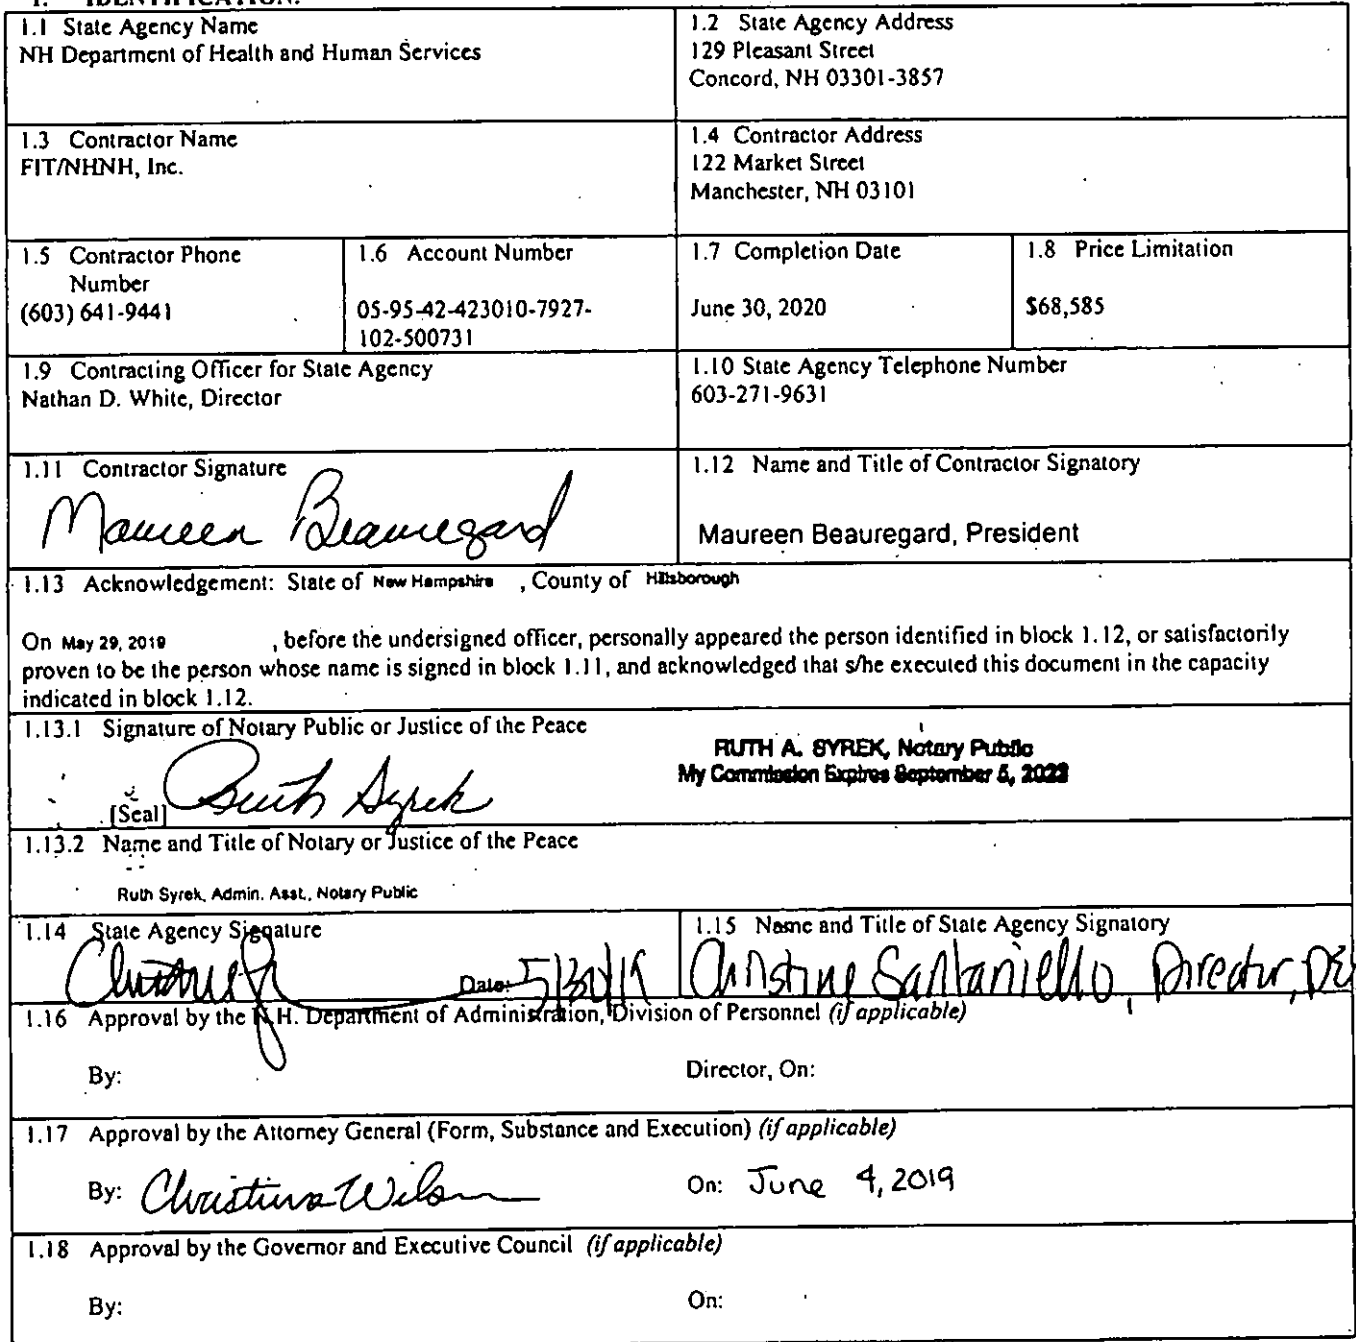 1. IDENTIFICATION.
1.1 State Agency Name
NH Department of Health and Human Services
1.2 State Agency Address
129 Pleasant Street
Concord, NH 03301-3857
1.3 Contractor Name
FIT/NHNH, Inc.
1.4 Contractor Address
122 Market Street
Manchester, NH 03101
1.5 Contractor Phone
Number
(603) 641-9441
1.6 Account Number
05-95-42-423010-7927-
102-500731
1.7 Completion Date
June 30, 2020
1.8 Price Limitation
$68,585
1.9 Contracting Officer for State Agency
Nathan D. White, Director
1.10 State Agency Telephone Number
603-271-9631
1.11 Contractor Signature
Maureen Beauregard
1.12 Name and Title of Contractor Signatory
Maureen Beauregard, President
1.13 Acknowledgement: State of New Hampshire , County of Hillsborough
On May 29, 2019 , before the undersigned officer, personally appeared the person identified in block 1.12, or satisfactorily
proven to be the person whose name is signed in block 1.11, and acknowledged that s/he executed this document in the capacity
indicated in block 1.12.
1.13.1 Signature of Notary Public or Justice of the Peace
RUTH A. SYREK, Notary Public
My Commission Expires September 5, 2022
[Seal] Ruth Syrek
1.13.2 Name and Title of Notary or Justice of the Peace
Ruth Syrek, Admin. Asst., Notary Public
1.14 State Agency Signature
Date: 5/30/19
1.15 Name and Title of State Agency Signatory
Christine Santaniello, Director,
1.16 Approval by the N.H. Department of Administration, Division of Personnel (if applicable)
By:
Director, On:
1.17 Approval by the Attorney General (Form, Substance and Execution) (if applicable)
By: Christina Wilson
On: June 4, 2019
1.18 Approval by the Governor and Executive Council (if applicable)
By:
On: